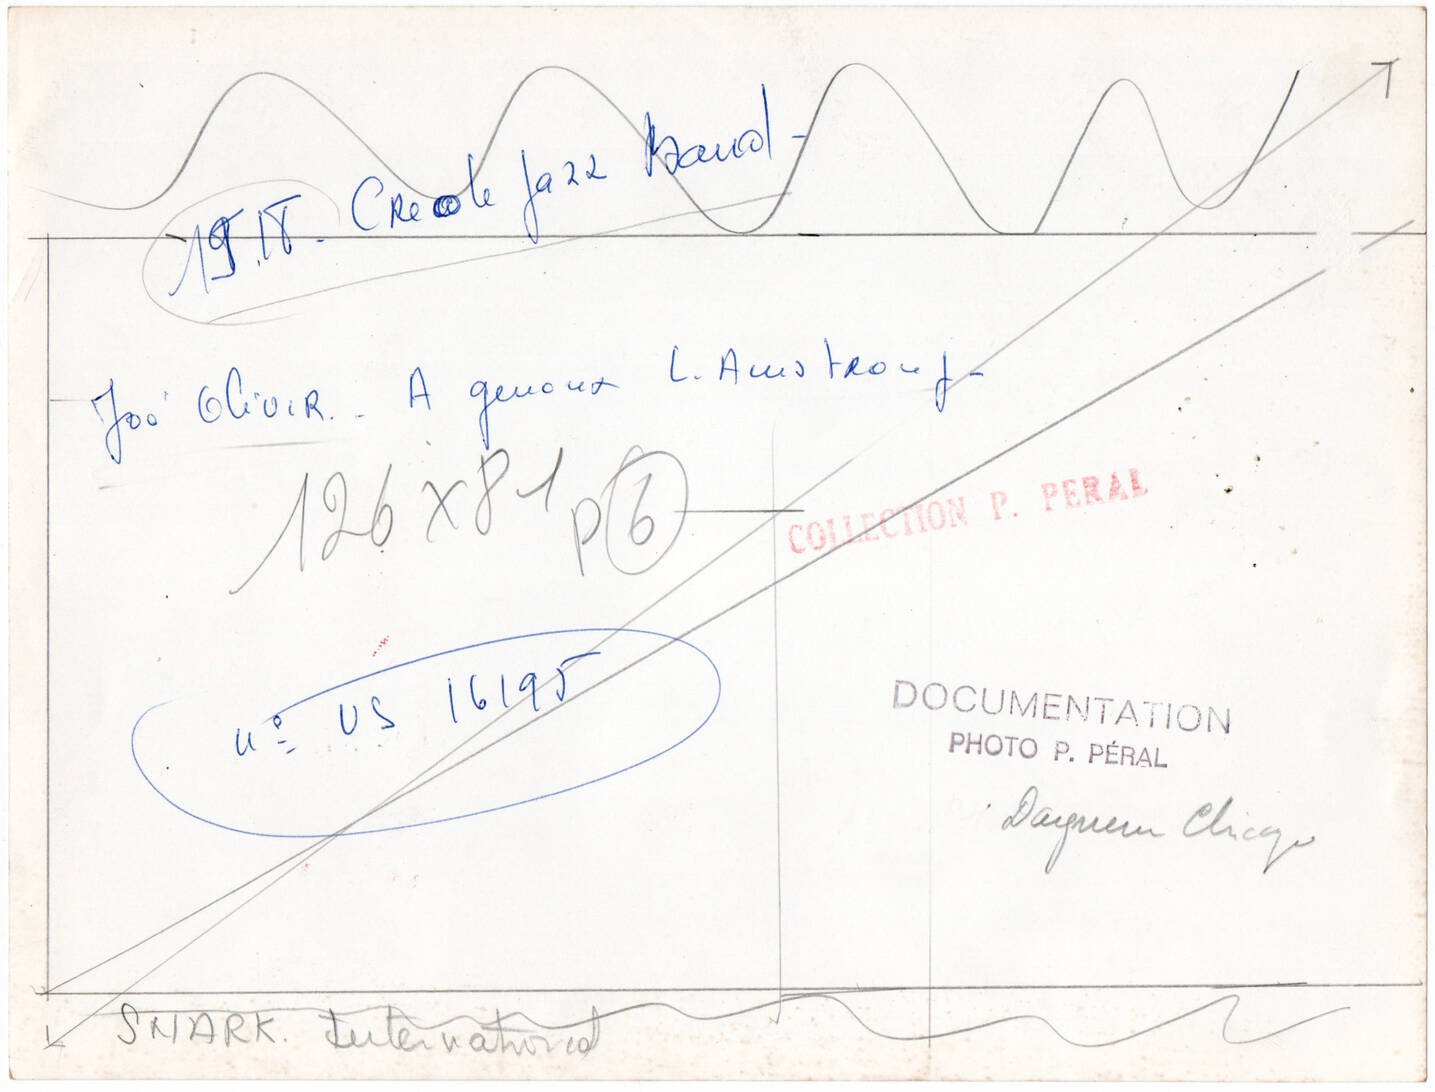 1918 - Creole Jazz Band -
Joé Olivir. - A genoux L. Amstrong -
126 x 81 p 6
COLLECTION P. PERAL
n° US 16195
DOCUMENTATION
PHOTO P. PÉRAL
Chicago
SNARK. International